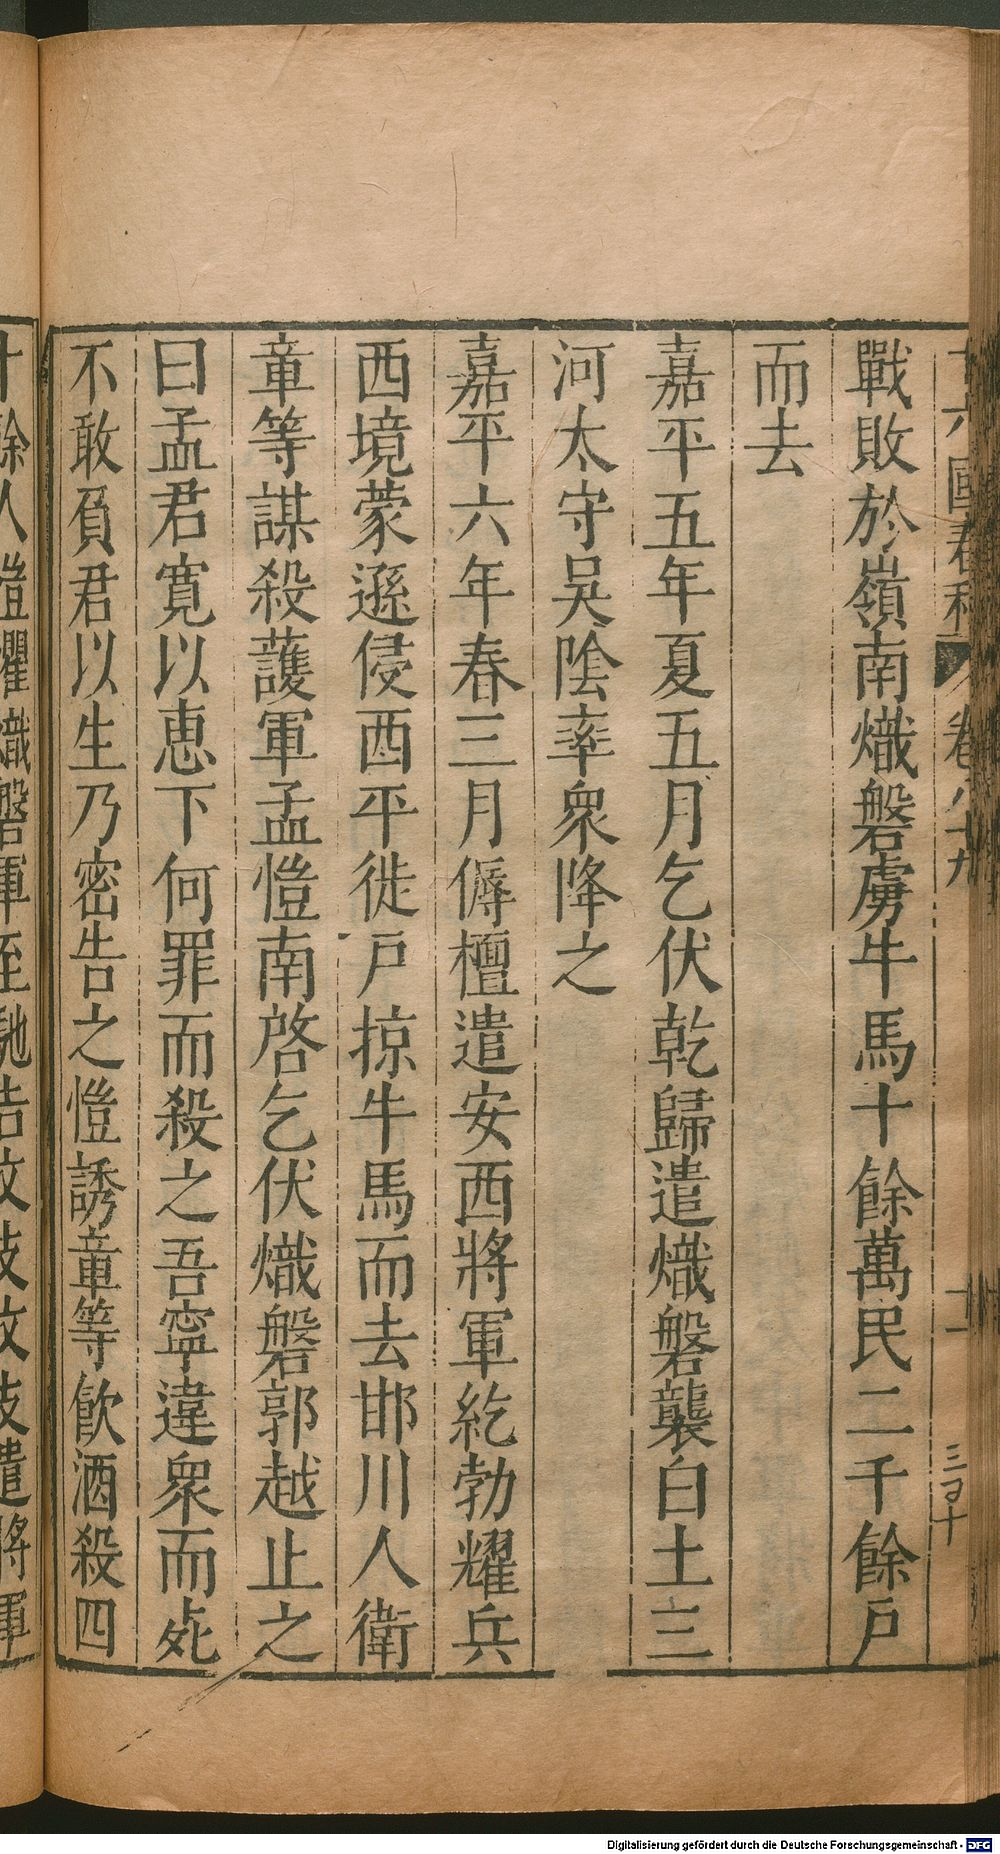 十六國春秋 卷八十九
十一
三百四十
戰敗於嶺南熾磐虜牛馬十餘萬民二千餘戶
而去
嘉平五年夏五月乞伏乾歸遣熾磐襲白土三
河太守吳陰率衆降之
嘉平六年春三月傉檀遣安西將軍紇勃耀兵
西境蒙遜侵西平徙戶掠牛馬而去邯川人衛
章等謀殺護軍孟愷南啓乞伏熾磐郭越止之
曰孟君寬以恵下何罪而殺之吾寜違衆而死
不敢負君以生乃密告之愷誘章等飲酒殺四
十餘人愷懼熾磐軍至馳告文支文支遣將軍
Digitalisierung gefördert durch die Deutsche Forschungsgemeinschaft - DFG